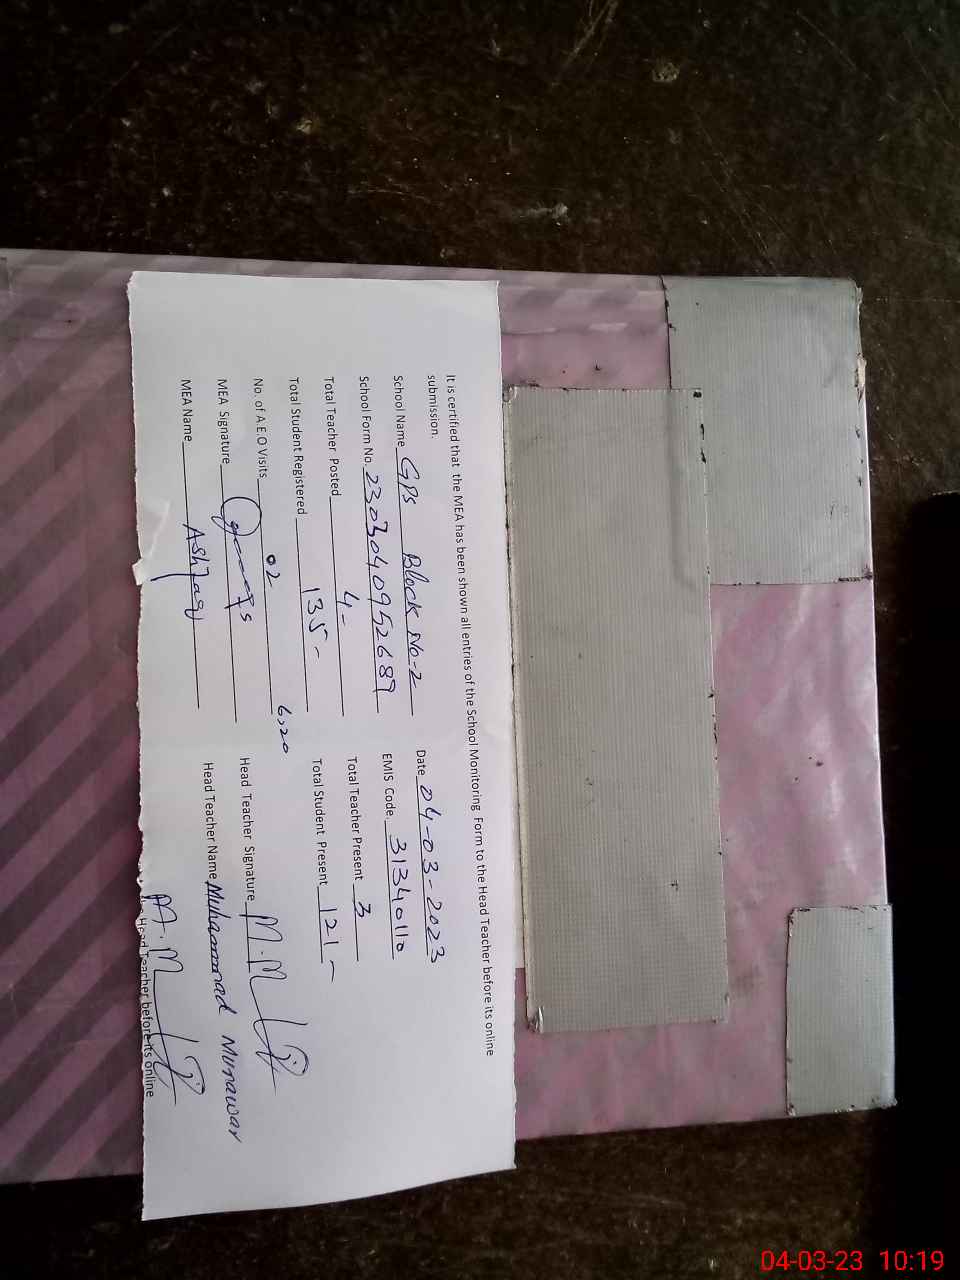 It is certified that the MEA has been shown all entries of the School Monitoring Form to the Head Teacher before its online
submission.
School Name GPS Block No-2 Date 04-03-2023
School Form No. 2303040952689 EMIS Code 31340110
Total Teacher Posted 4- Total Teacher Present 3
Total Student Registered 135- Total Student Present 121-
No. of A.E.O Visits 02 6,20
MEA Signature Head Teacher Signature M.M
MEA Name Ashfaq Head Teacher Name Muhammad Munawar
M.M
Head Teacher before its online
04-03-23 10:19